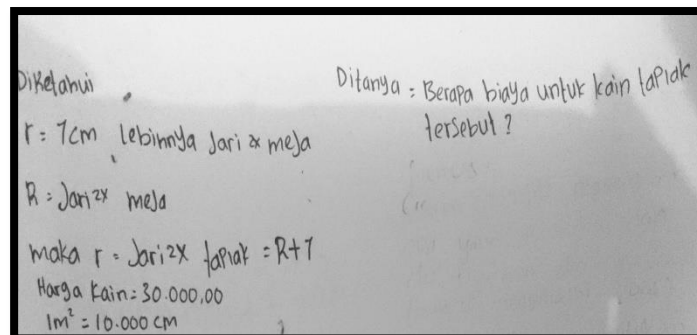 Diketahui
r = 7cm lebihnya Jari 2x meja
R = Jari 2x meja
maka r = Jari 2x taplak = R+7
Harga kain = 30.000,00
1m² = 10.000 cm
Ditanya = Berapa biaya untuk kain taplak
tersebut ?